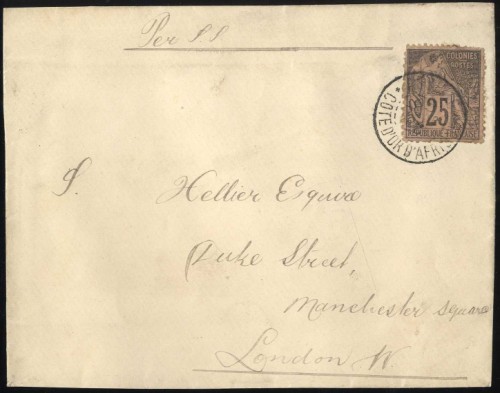 Per S.S.
COLONIES
POSTES
25
RÉPUBLIQUE FRANÇAISE
CÔTE D'OR D'AFRI
S. Hellier Esquire
Duke Street,
Manchester Square
London W